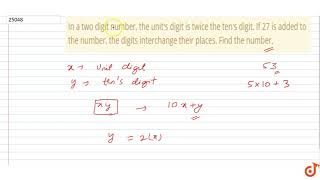 25048
In a two digit number, the unit's digit is twice the ten's digit. If 27 is added to
the number, the digits interchange their places. Find the number.
x → Unit digit 53
y → ten's digit 5x10+3
xy → 10x+y
y = 2(x)